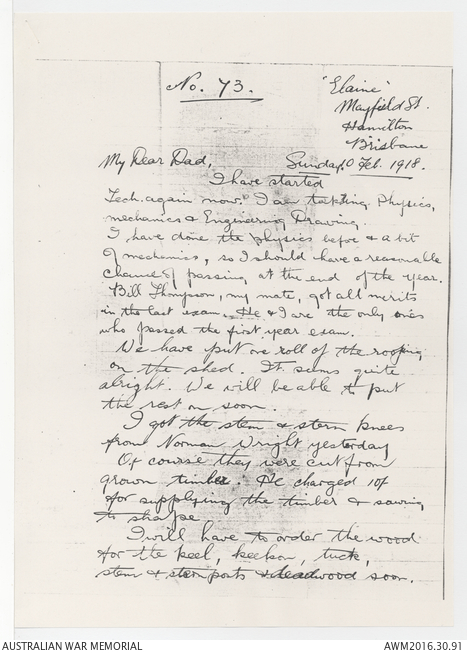 No. 73.
"Elaine"
Mayfield St.
Hamilton
Brisbane
My Dear Dad,
Sunday, 10 Feb. 1918.
I have started
Tech. again now. I am taking Physics,
mechanics & Engineering Drawing.
I have done the physics before & a bit
of mechanics, so I should have a reasonable
chance of passing at the end of the year.
Bill Thompson, my mate, got all merits
in the last exam. He & I are the only ones
who passed the first year exam.
We have put one roll of the roofing
on the shed. It seems quite
alright. We will be able to put
the rest on soon.
I got the stem & stern knees
from Norman Wright yesterday
Of course they were cut from
grown timber. He charged 10/
for supplying the timber & sawing
to shape
I will have to order the wood
for the keel, keelson, tuck,
stem & stern posts & deadwood soon.
AUSTRALIAN WAR MEMORIAL
AWM2016.30.91